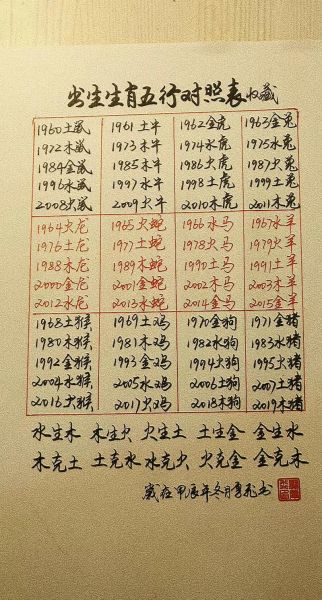 出生生肖五行对照表收藏
1960土鼠 1961土牛 1962金虎 1963金兔
1972木鼠 1973木牛 1974水虎 1975水兔
1984金鼠 1985木牛 1986火虎 1987火兔
1996水鼠 1997水牛 1998土虎 1999土兔
2008火鼠 2009火牛 2010木虎 2011木兔
1964火龙 1965火蛇 1966水马 1967水羊
1976土龙 1977土蛇 1978火马 1979火羊
1988木龙 1989木蛇 1990土马 1991土羊
2000金龙 2001金蛇 2002木马 2003木羊
2012水龙 2013水蛇 2014金马 2015金羊
1968土猴 1969土鸡 1970金狗 1971金猪
1980木猴 1981木鸡 1982水狗 1983水猪
1992金猴 1993金鸡 1994火狗 1995火猪
2004水猴 2005水鸡 2006土狗 2007土猪
2016火猴 2017火鸡 2018木狗 2019木猪
水生木 木生火 火生土 土生金 金生水
木克土 土克水 水克火 火克金 金克木
岁在甲辰年冬月 书